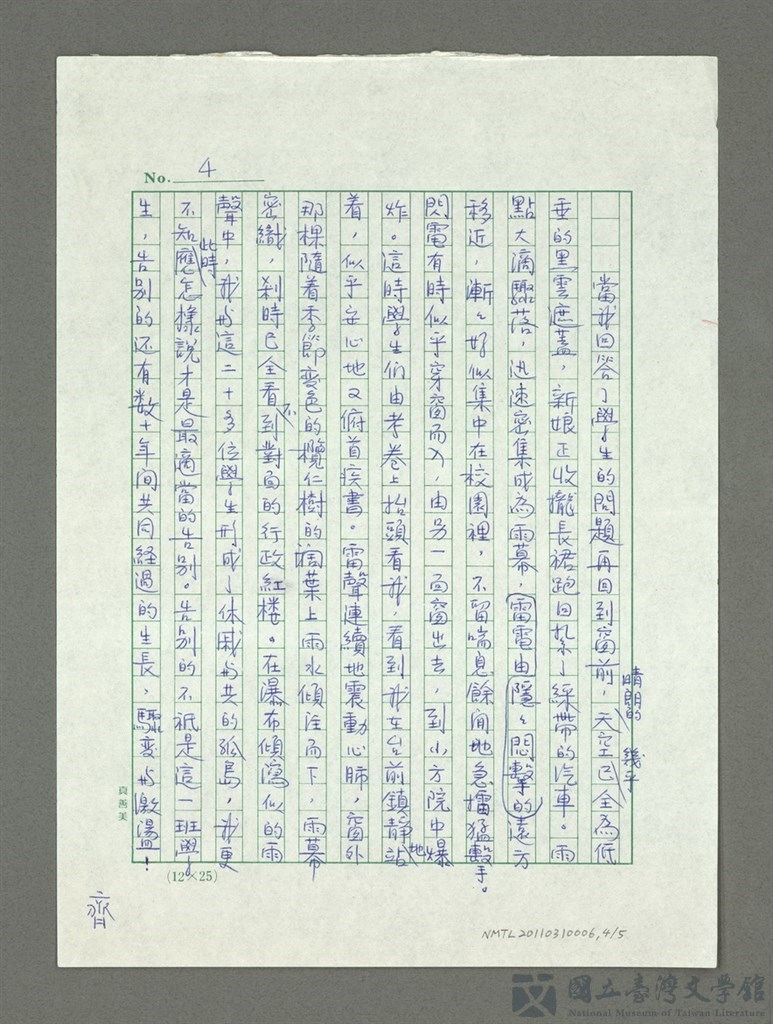 No. 4
當我回答了學生的問題再回到窗前，晴朗的天空已幾乎全為低
垂的黑雲遮蓋，新娘正收攏長裙跑回紮了綵帶的汽車。雨
點大滴驟落，迅速密集成為雨幕，雷電由隱隱悶擊的遠方
移近，漸漸好似集中在校園裡，不留喘息餘間地急擂猛擊。
閃電有時似乎穿窗而入，由另一面窗出去，到小方院中爆
炸。這時學生們由考卷上抬頭看我，看到我在台前鎮靜地站
着，似乎安心地又俯首疾書。雷聲連續地震動心肺，窗外
那棵隨着季節変色的欖仁樹的濶葉上雨水傾注而下，雨幕
密織，刹時已全看不到對面的行政紅楼。在瀑布傾瀉似的雨
聲中，我与這二十多位學生形成了休戚与共的孤島，我更
不知此時應怎樣說才是最適當的告別。告別的不祇是這一班學
生，告別的还有数十年间共同経過的生長，驟変与激盪！
真善美
(12×25)
齊
NMTL20110310006,4/5
國立臺灣文學館
National Museum of Taiwan Literature